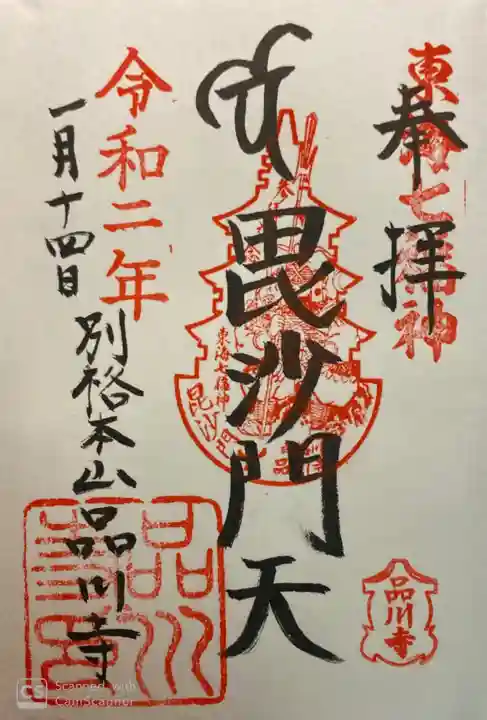 東海七福神
奉拝
毘沙門天
東海七福神
毘沙門
令和二年
一月十四日
別格本山品川寺
品川
品川寺
CS Scanned with
CamScanner